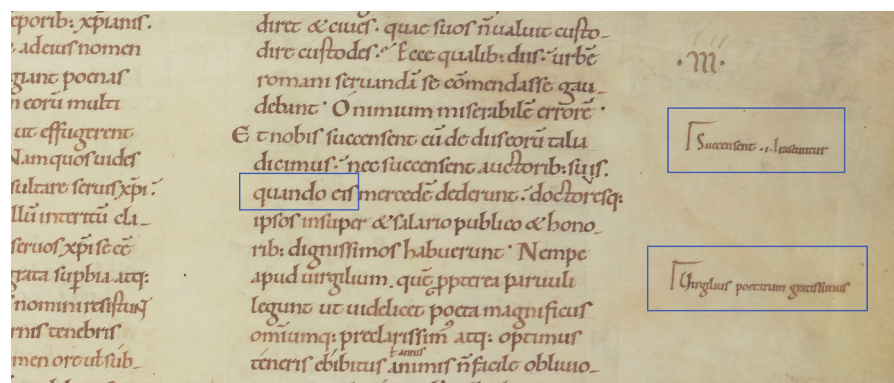 eporib: xp̄ianis.
adeius nomen
giant poenas
n eorū multi
ut effugerent
Nam quos uides
sultare seruis xp̄i:
llū interitū cla_
seruos xp̄i se eē
grata sup̄bia atq:
nomini resistunt
rnis tenebris
men ore ut sub_
diret & ciues. quae suos ñ ualuit custo_
dire custodes. Ecce qualib: diis. urbē
romani seruandā se cōmendasse gau_
debant. O nimium miserabilē errorē.
Et nobis succensent cū de diis eorū talia
dicimus. nec succensent auctorib: suis.
quando eis mercedē dederunt. doctoresq:
ipsos insuper & salario publico & hono_
rib: dignissimos habuerunt. Nempe
apud uirgilium. quē p̱pterea paruuli
legunt ut uidelicet poeta magnificus
omiumq: preclarissim' atq: optimus
teneris ebibitus annis animis ñ facile obliuio_
·III·
Succensent .i. Irascuntur
Virgilius poetarum gratissimus